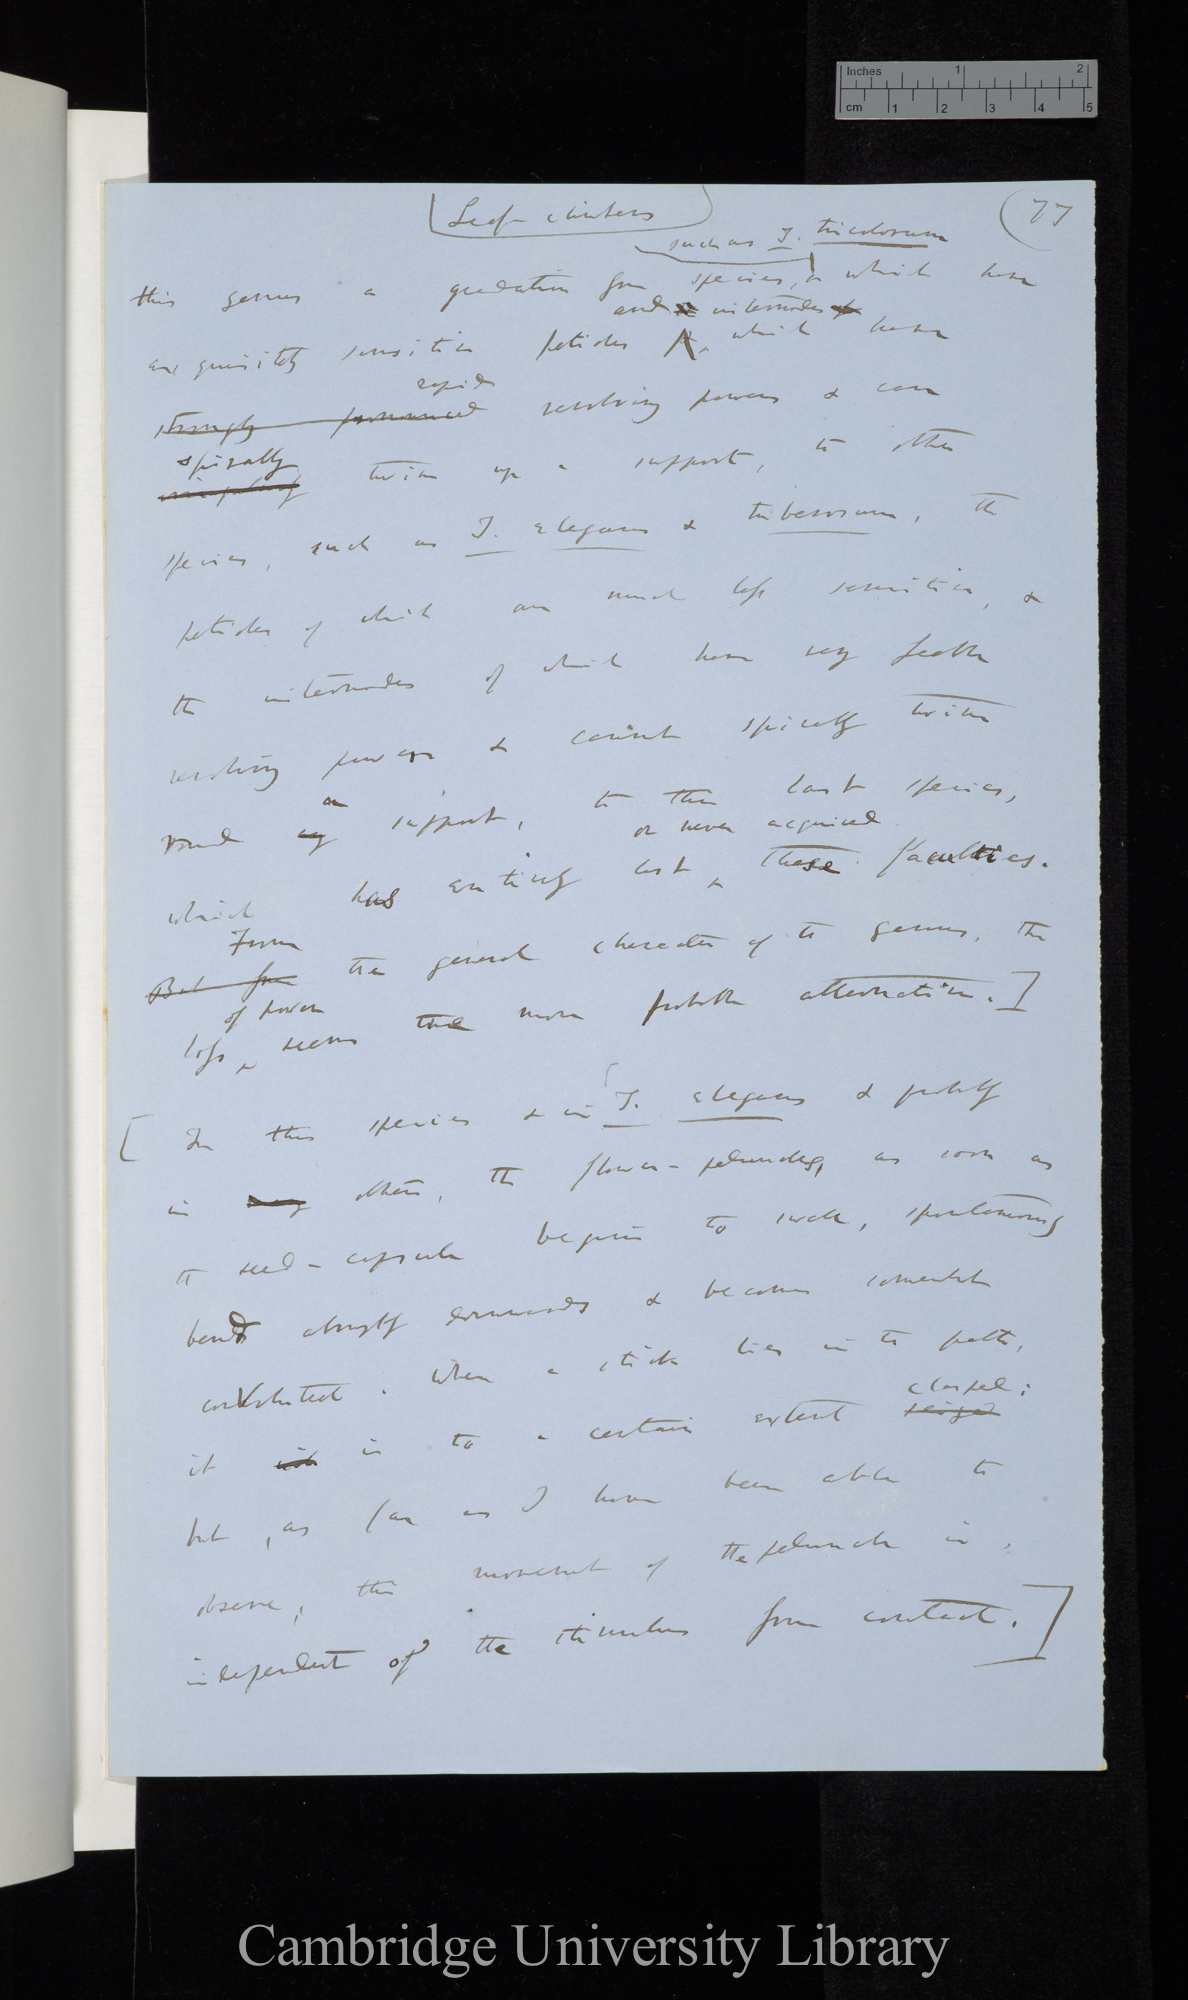 Inches 1 2
cm 1 2 3 4 5
Leaf-climbers
(77
such as T. tricolorum
this genus a gradation from species, which have
and internodes
exquisitely sensitive petioles, which have
rapid
strongly pronounced revolving powers & can
spirally
twine up a support, to other
species, such as T. elegans & tuberosum, the
petioles of which are much less sensitive, &
the internodes of which have very feeble
revolving powers & cannot spirally twine
a
round any support, to this last species,
or never acquired
which has entirely lost these faculties.
From
But from the general character of the genus, the
of power
loss seems the more probable alternative.]
[In this species & in T. elegans & probably
in many others, the flower-peduncles, as soon as
the seed-capsule begins to swell, spontaneously
bends abruptly downwards & becomes somewhat
convoluted. When a stick lies in the path,
clasped;
it will is to a certain extent seized
but, as far as I have been able to
observe, this movement of the peduncle is,
independent of the stimulus from contact.]
Cambridge University Library